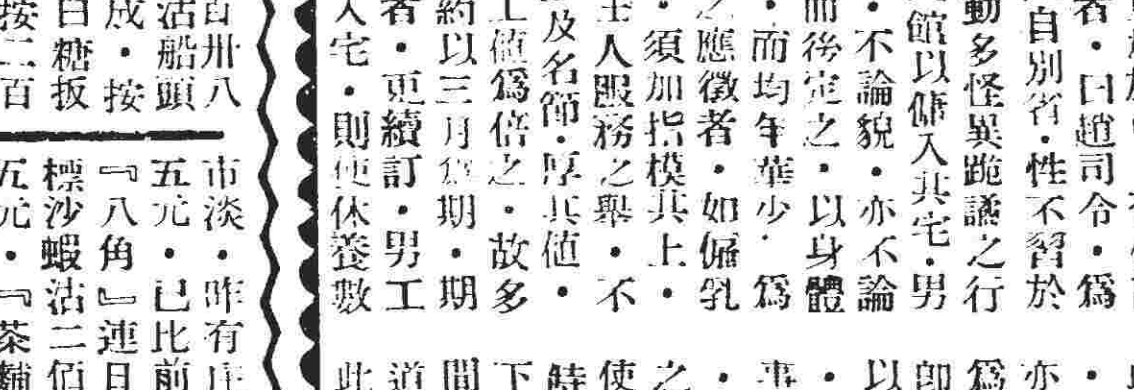 者・曰趙司令・爲
自別省・性不習於
動多怪異跪譎之行
館以傭入其宅・男
・不論貌・亦不論
而後定之・以身體
・而均年華少・爲
之應徵者・如僱乳
・須加指模其上・
主人服務之舉・不
及名節・厚其値・
工値爲倍之・故多
約以三月爲期・期
者・更續訂・男工
入宅・則使休養數
亦
爲
卽
以
・
事
・
之
使
時
下
間
道
此
百卅八
沽船頭
成・按
白糖扳
按二百
市淡・昨有
五元・已比前
『八角』連日
標沙蝦沽二佰
五元・『茶